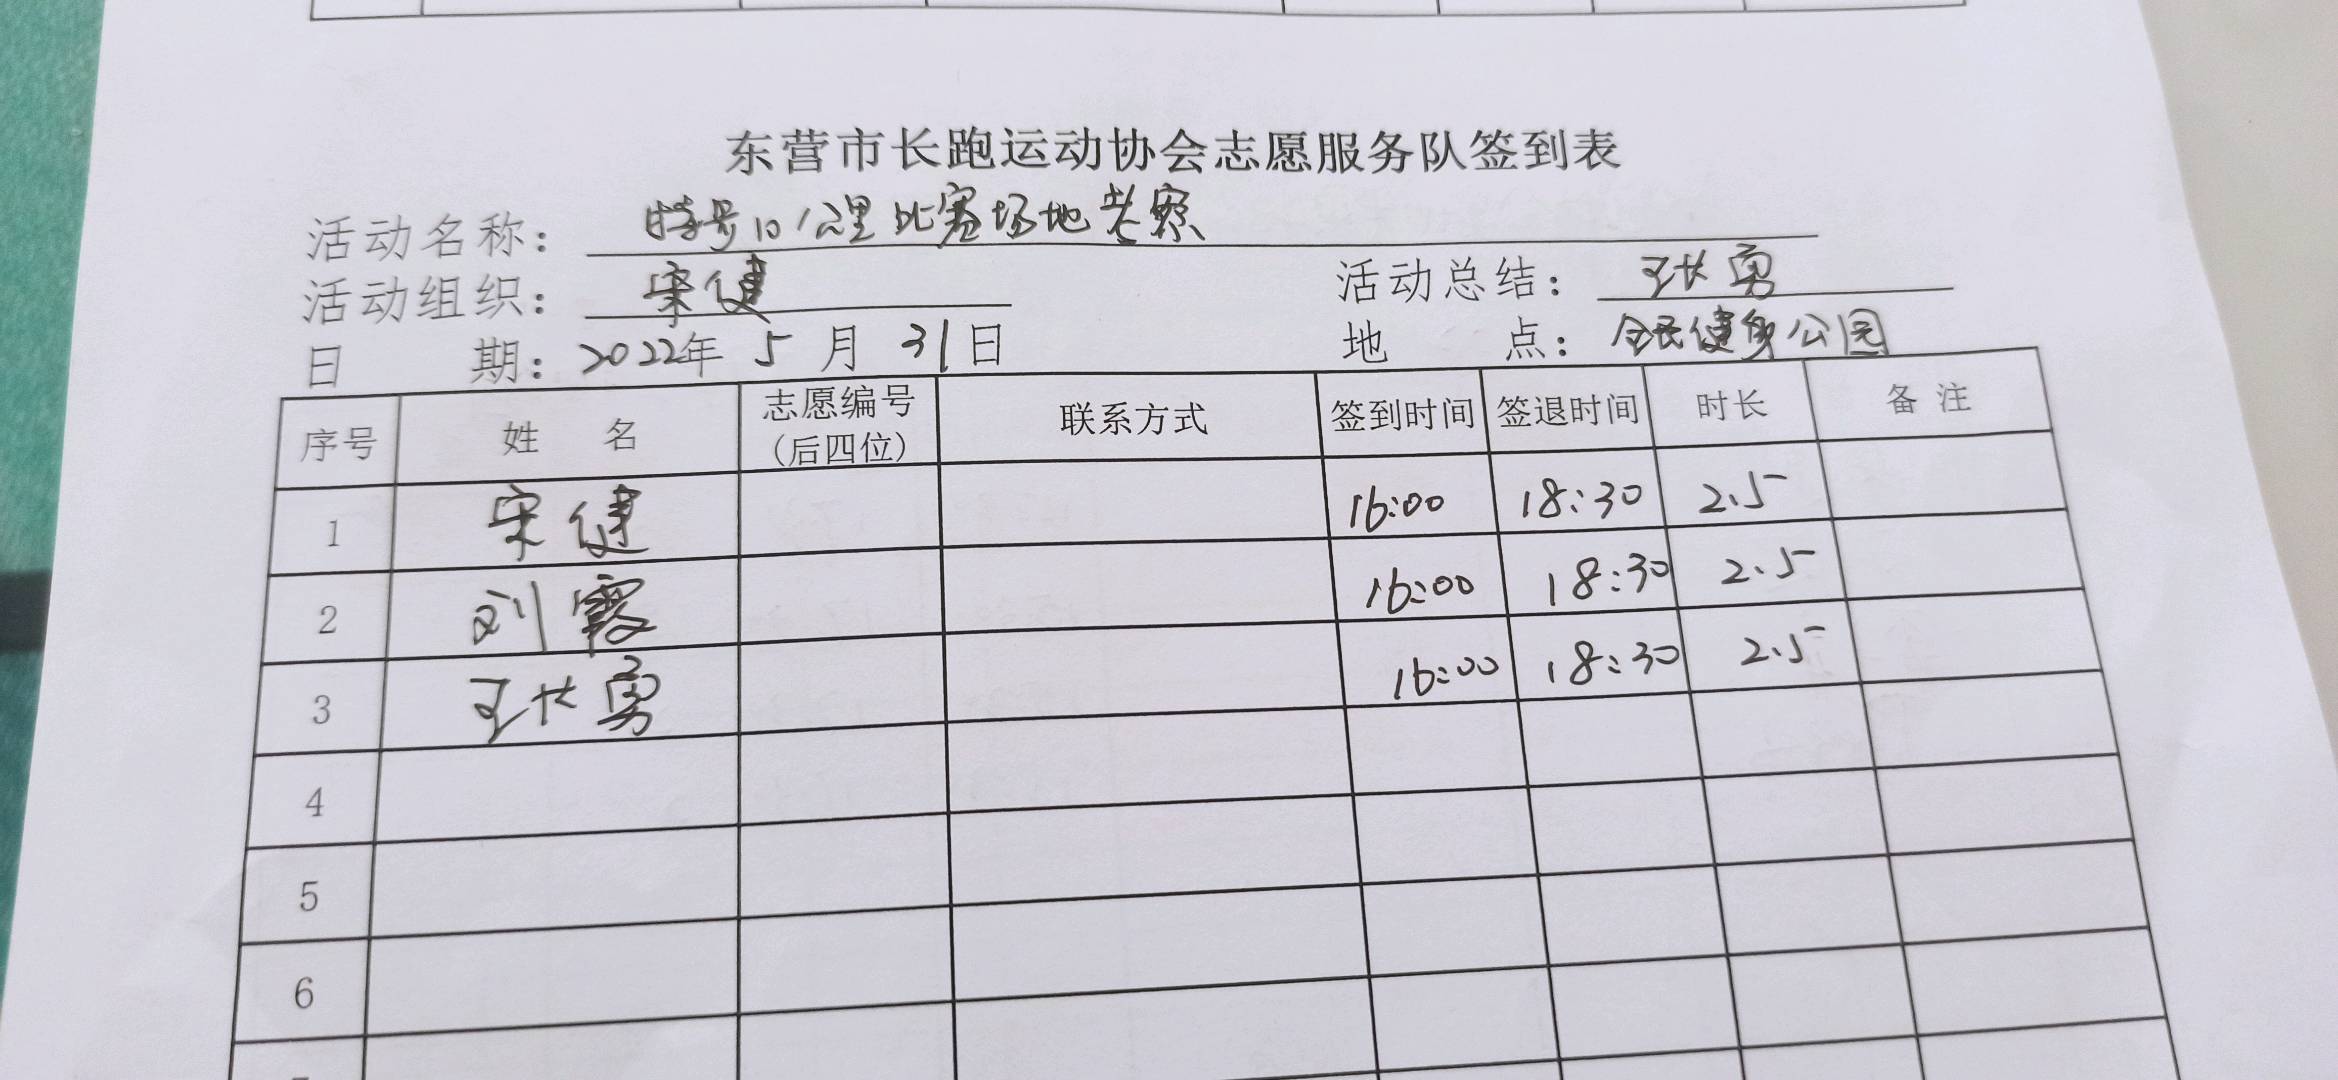 东营市长跑运动协会志愿服务队签到表
活动名称: 特号10公里比赛场地考察
活动组织: 宋健 活动总结: 王长勇
日 期: 2022年 5 月 31日 地 点: 全民健身公园
序号 姓 名 志愿编号(后四位) 联系方式 签到时间 签退时间 时长 备 注
1 宋健 16:00 18:30 2.5
2 刘霞 16:00 18:30 2.5
3 王长勇 16:00 18:30 2.5
4
5
6